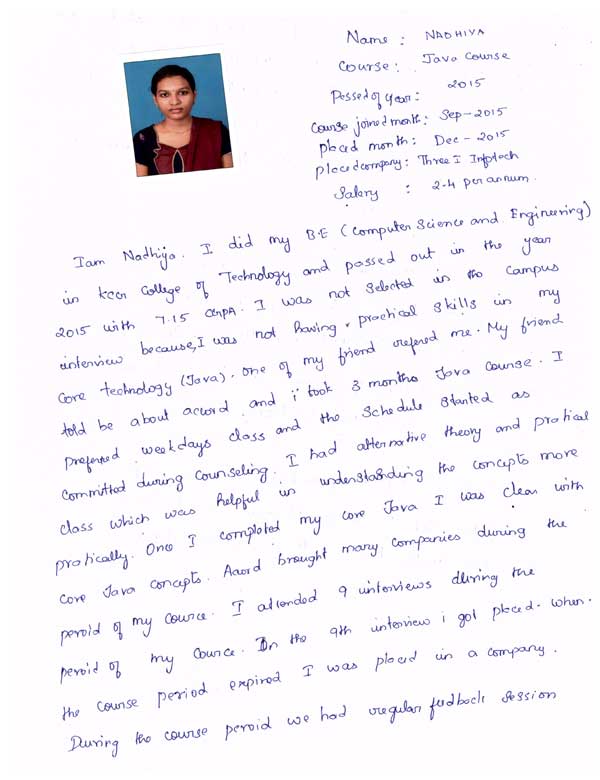 Name : NADHIYA
Course : Java Course
Passed of year : 2015
Course joined month : Sep - 2015
placed month : Dec - 2015
placed company : Three I Infotech
Salary : 2-4 per annum.
Iam Nadhiya. I did my B.E (Computer Science and Engineering)
in kccr College of Technology and passed out in the year
2015 with 7.15 CGPA. I was not selected in the campus
interview because, I was not having practical skills in my
Core technology (Java). One of my friend refered me. My friend
told be about acord and i took 3 months Java Course. I
preferred weekdays class and the Schedule Started as
Committed during Counseling. I had alternative theory and pratical
class which was helpful in understanding the concepts more
pratically. Once I completed my core Java I was clear with
Core Java concepts. Acord brought many companies during the
peroid of my Cource. I attended 9 interviews during the
peroid of my Cource. In the 9th interview i got placed. when
the course period expired I was placed in a company.
During the course peroid we had regular fedback session